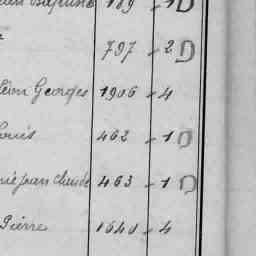 189 - 1 D
797 - 2 D
Léon Georges 1906 - 4
Louis 462 - 1 D
Jean Claude 463 - 1 D
Pierre 1640 - 4